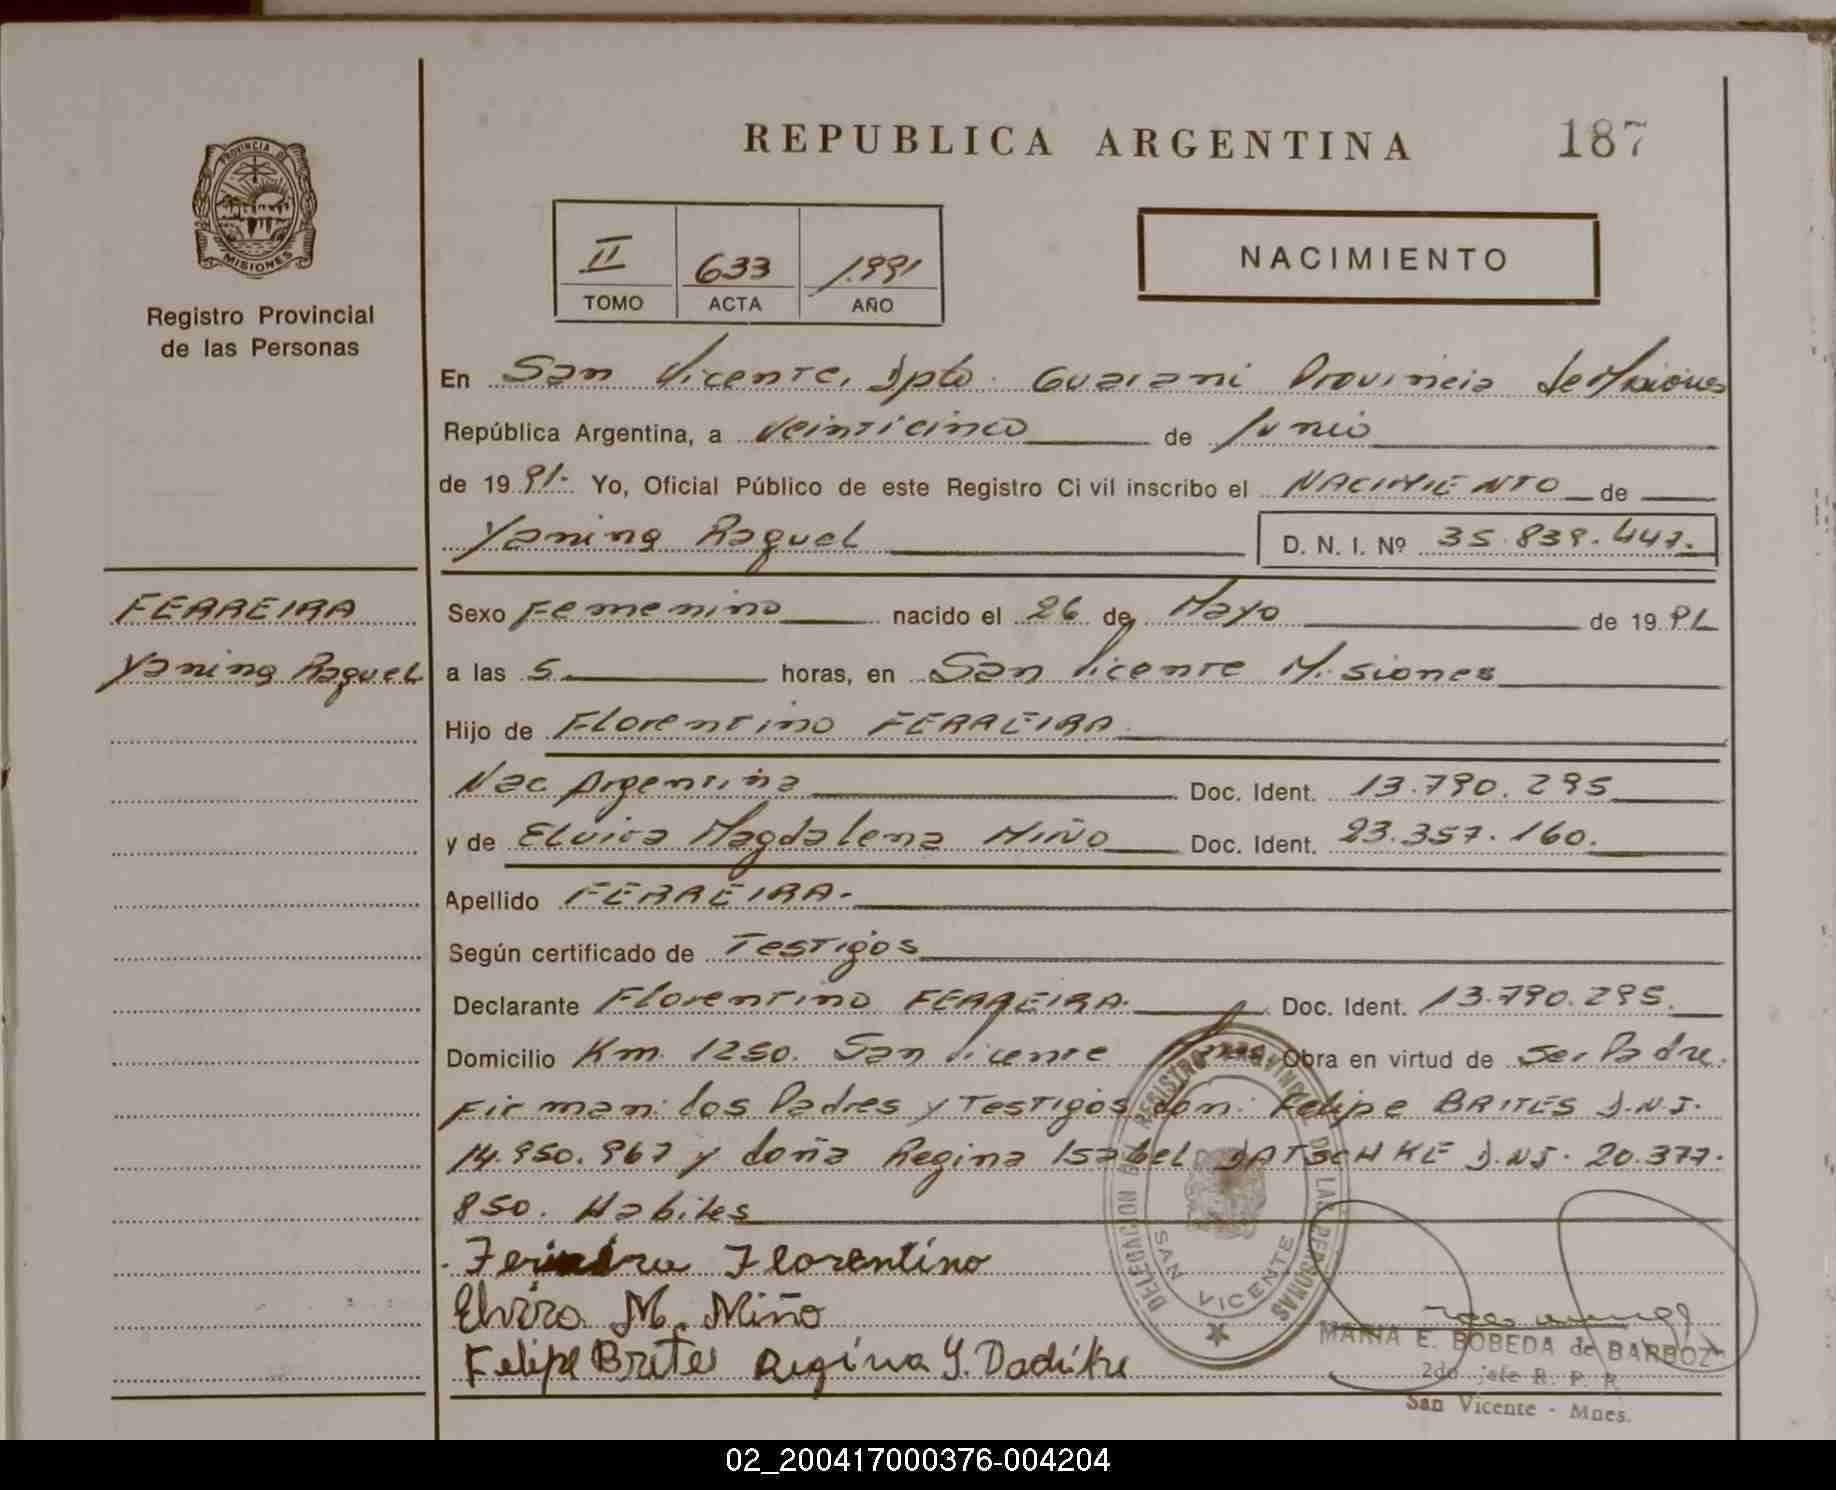 187
REPUBLICA ARGENTINA
PROVINCIA DE MISIONES
Registro Provincial
de las Personas
II 633 1.991
TOMO ACTA AÑO
NACIMIENTO
En San Vicente, Dpto. Guarani Provincia de Misiones
República Argentina, a veinticinco de Junio
de 19 91.- Yo, Oficial Público de este Registro Civil inscribo el NACIMIENTO de
Yanina Raquel D. N. I. Nº 35.839.447.
FERREIRA
Yanina Raquel
Sexo Femenino nacido el 26 de Mayo de 19 91
a las 5. horas, en San Vicente Misiones
Hijo de Florentino FERREIRA
Nac Argentina Doc. Ident. 13.790.295
y de Elvira Magdalena MIÑO Doc. Ident. 23.357.160.
Apellido FERREIRA.-
Según certificado de Testigos
Declarante Florentino FERREIRA. Doc. Ident. 13.790.295.
Domicilio Km. 1250. San Vicente Mnes. Obra en virtud de ser Padre.
Firman: los Padres y Testigos don: Felipe BRITES D.N.I.
14.950.967 y doña Regina Isabel DATSCHKE D.NI. 20.377.
850. Habiles
Ferreira Florentino
Elvira M. Miño
Felipe Brites Regina Y.
DELEGACION DEL REGISTRO PROVINCIAL DE LAS PERSONAS
SAN VICENTE
MARIA E. BOBEDA de BARBOZ
2do jefe R. P. P.
San Vicente - Mnes.
02_200417000376-004204